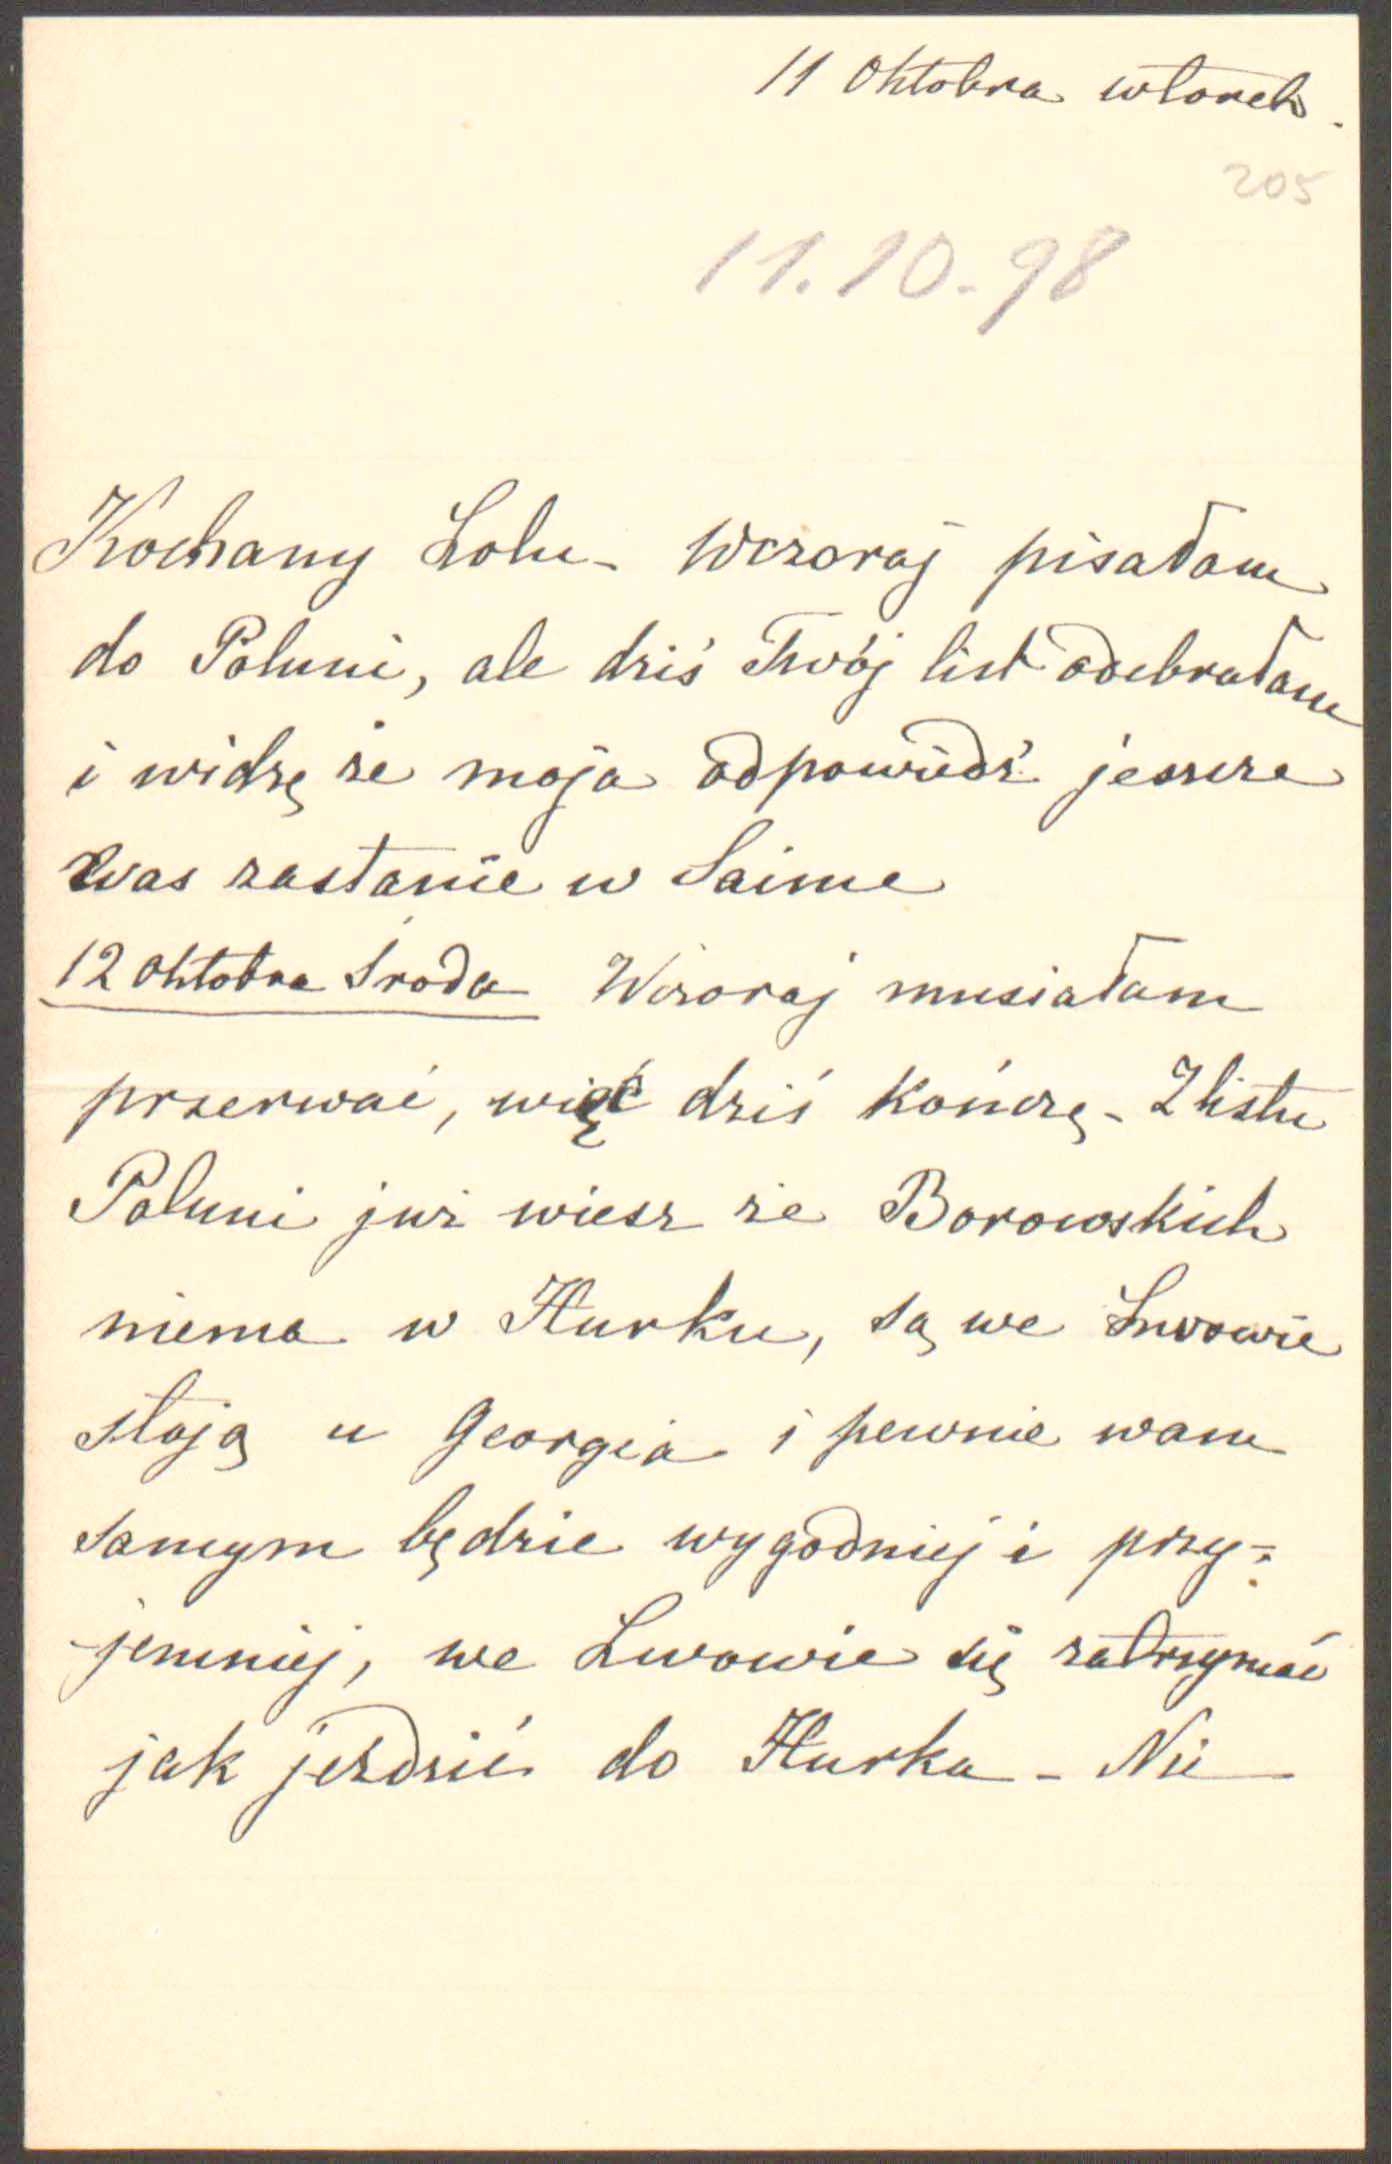 11 Oktobra wtorek.
205
11.10.98
Kochany Lolu - Wczoraj pisałam
do Poluni, ale dziś Twój list odebrałam
i widzę że moja odpowiedź jeszcze
was zastanie w Saime
12 Oktobra Środa Wczoraj musiałam
przerwać, więc dziś kończę - Z listu
Poluni już wiesz że Borowskich
niema w Hurku, są we Lwowie
stoją u Georgia i pewnie wam
samym będzie wygodniej i przy=
jemniej, we Lwowie się zatrzymać
jak jeździć do Hurka - Nie